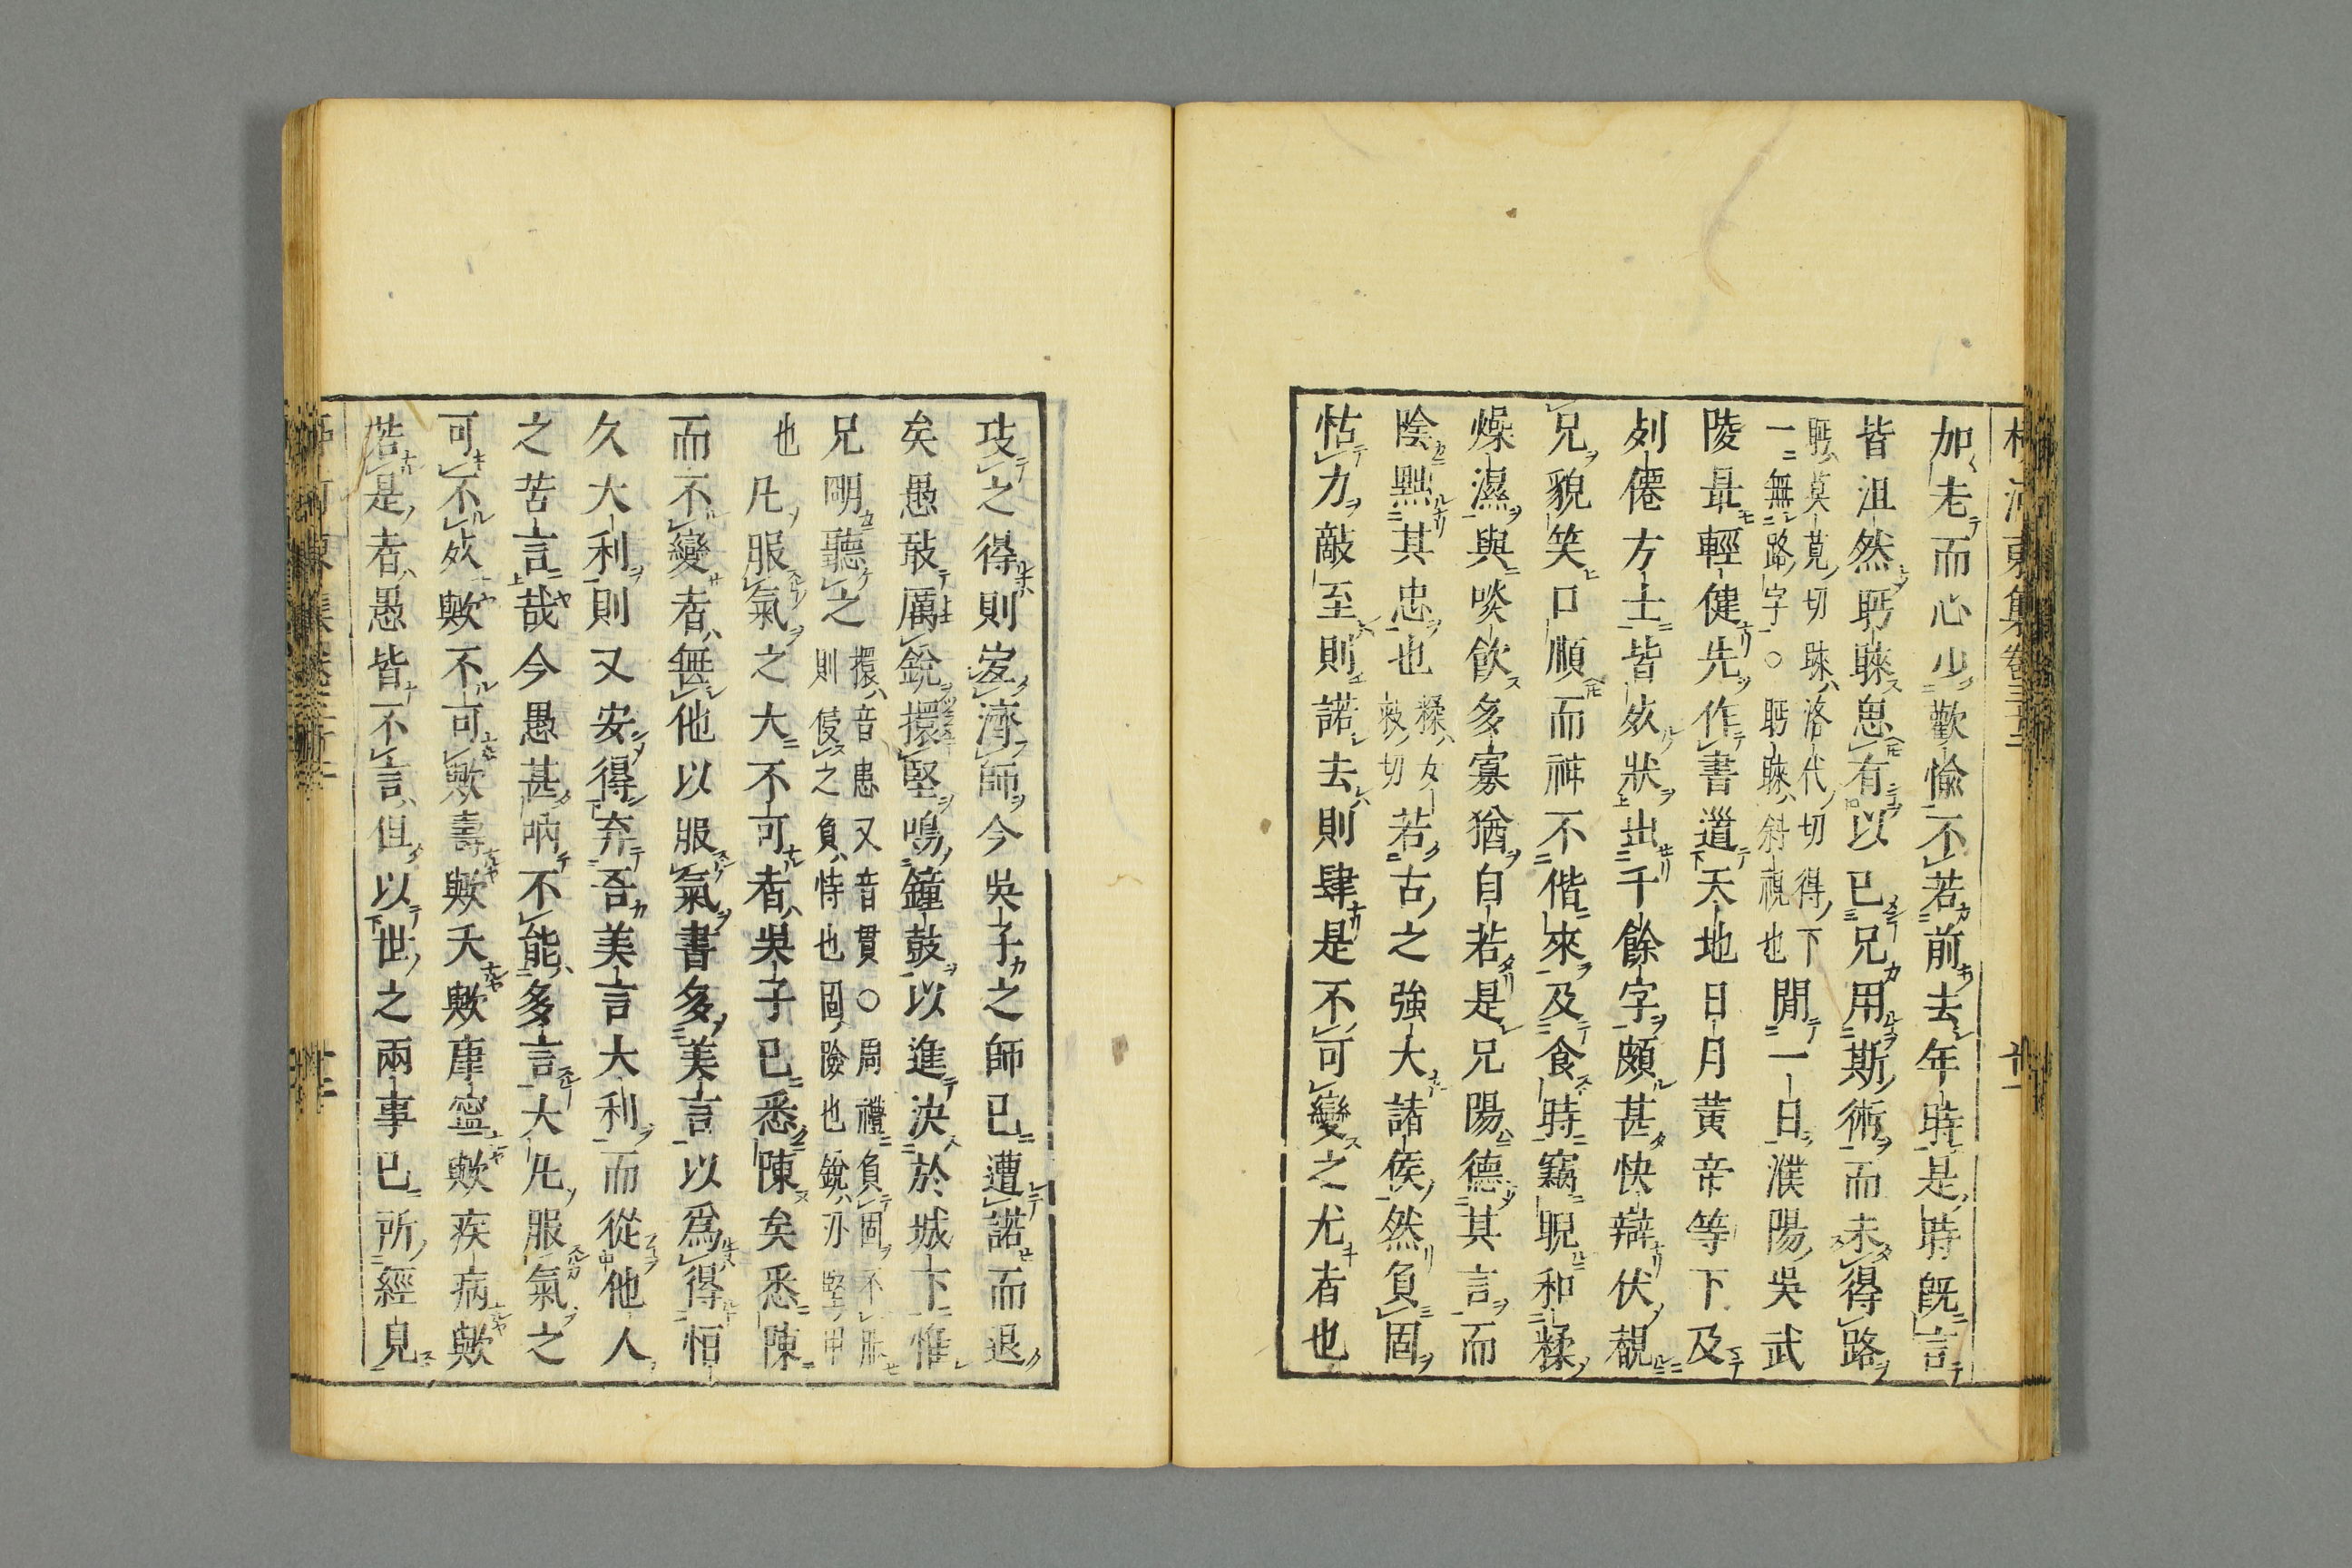 加老而心少歡愉不若前去年時是時既言
皆沮然眄睞思有以已兄用斯術而未得路
眄莫莧切睞洛代切得下
一無路字○眄睞斜視也
閒一日濮陽吳武
陵最輕健先作書道天地日月黃帝等下及
列僊方士皆死狀出千餘字頗甚快辯伏覩
兄貌笑口順而神不偕來及食時竊睨和糅
燥濕與啖飮多寡猶自若是兄陽德其言而
陰黜其忠也
糅女
救切
若古之強大諸侯然負固
怙力敵至則諾去則肆是不可變之尤者也
攻之得則宜濟師今吳子之師已遭諾而退
矣愚敢厲銳擐堅鳴鐘鼓以進決於城下惟
兄明聽之
擐音患又音貫○周禮負固不服
則侵之負恃也固險也銳刃堅甲
也
凡服氣之大不可者吳子已悉陳矣悉陳
而不變者無他以服氣書多美言以爲得恒
久大利則又安得弃吾美言大利而從他人
之苦言哉今愚甚吶不能多言大凡服氣之
可不死歟不可歟壽歟夭歟康寧歟疾病歟
若是者愚皆不言但以世之兩事已所經見